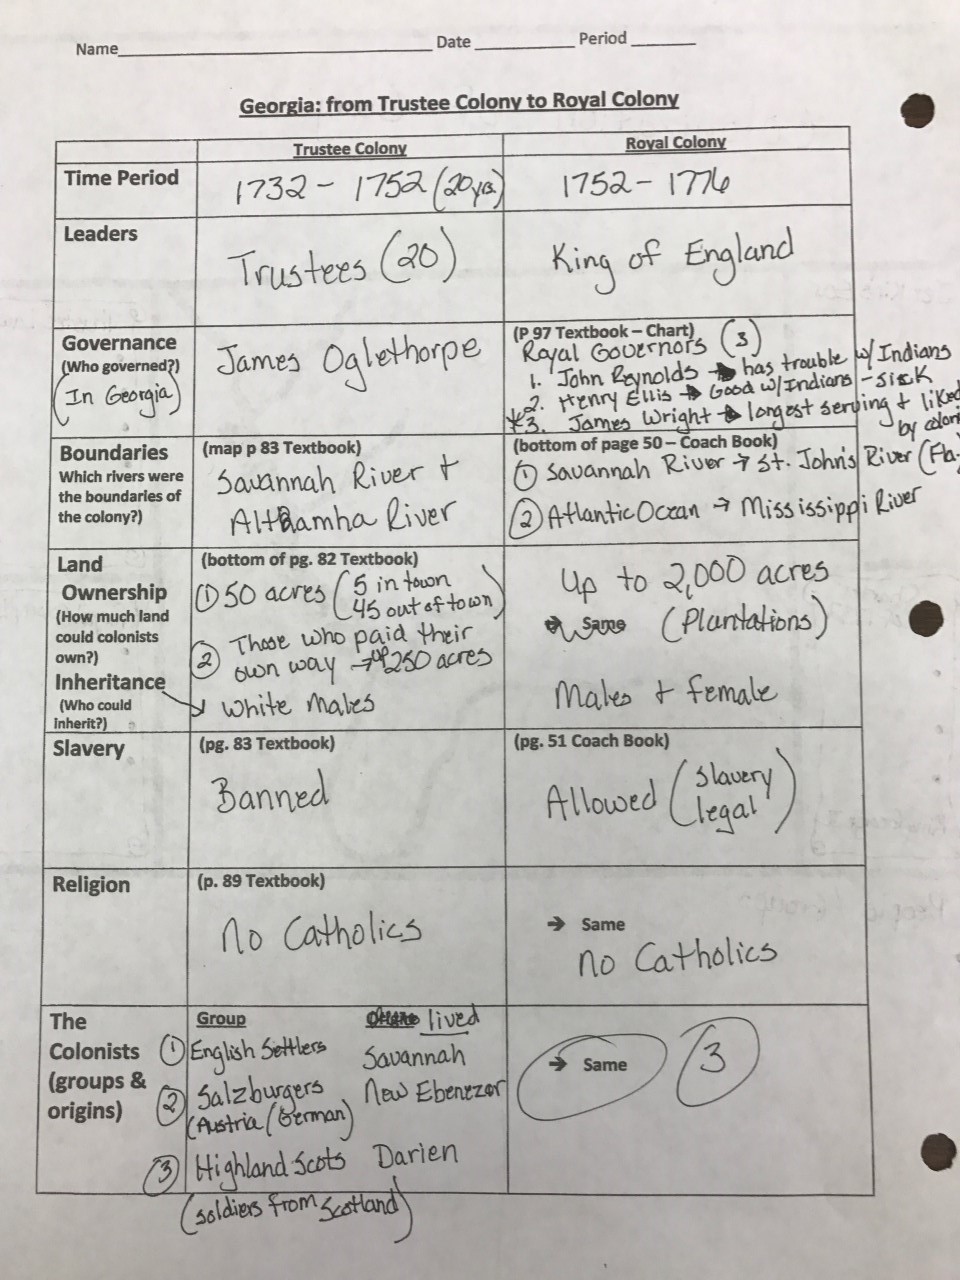 Name Date Period
Georgia: from Trustee Colony to Royal Colony
Trustee Colony
Royal Colony
Time Period
1732 - 1752 (20yrs)
1752 - 1776
Leaders
Trustees (20)
King of England
Governance
(Who governed?)
(In Georgia)
James Oglethorpe
(P 97 Textbook – Chart)
Royal Governors (3)
1. John Reynolds → has trouble w/ Indians
2. Henry Ellis → Good w/Indians - sick
*3. James Wright → longest serving + liked
by coloni
Boundaries
Which rivers were
the boundaries of
the colony?)
(map p 83 Textbook)
Savannah River +
Altamha River
(bottom of page 50 – Coach Book)
① Savannah River → St. John's River (Fla.
② Atlantic Ocean → Mississippi River
Land
Ownership
(How much land
could colonists
own?)
Inheritance
(Who could
inherit?)
(bottom of pg. 82 Textbook)
① 50 acres (5 in town
45 out of town)
② Those who paid their
own way → up 250 acres
→ White Males
Up to 2,000 acres
→ Same (Plantations)
Males + female
Slavery
(pg. 83 Textbook)
Banned
(pg. 51 Coach Book)
Allowed (slavery
legal)
Religion
(p. 89 Textbook)
No Catholics
→ Same
no Catholics
The
Colonists
(groups &
origins)
Group lived
① English Settlers Savannah
② Salzburgers New Ebenezer
(Austria/German)
③ Highland Scots Darien
(soldiers from Scotland)
→ Same 3